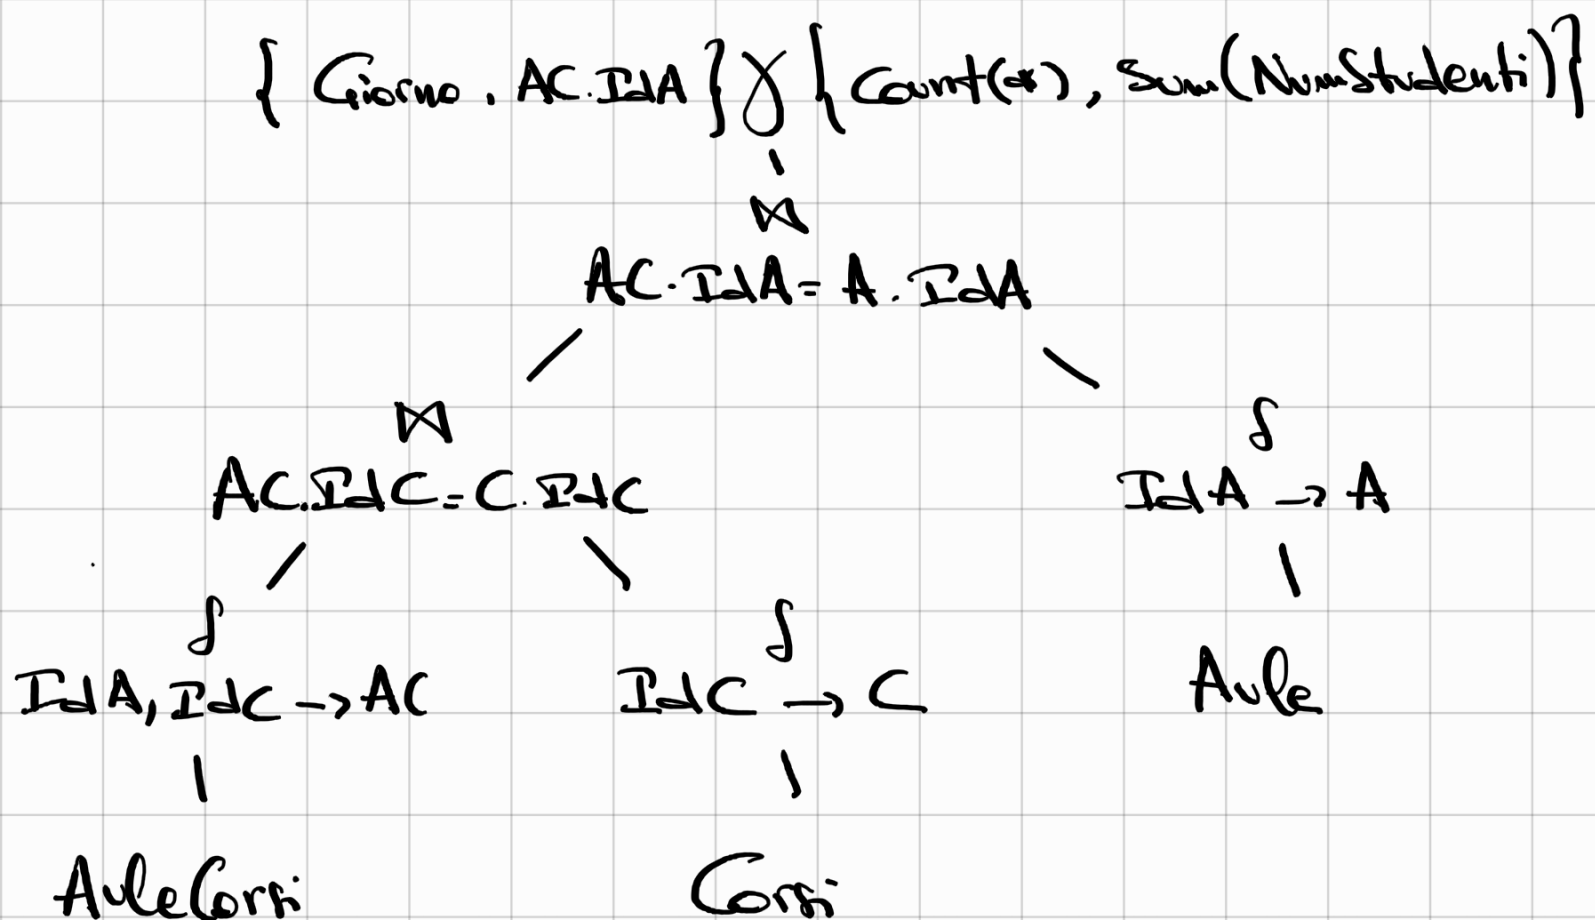 { Giorno, AC.IdA } γ { Count(*), Sum(NumStudenti) }
⋈
AC.IdA = A.IdA
⋈
δ
AC.IdC = C.IdC
IdA → A
δ
δ
IdA, IdC → AC
IdC → C
Aule
AuleCorsi
Corsi